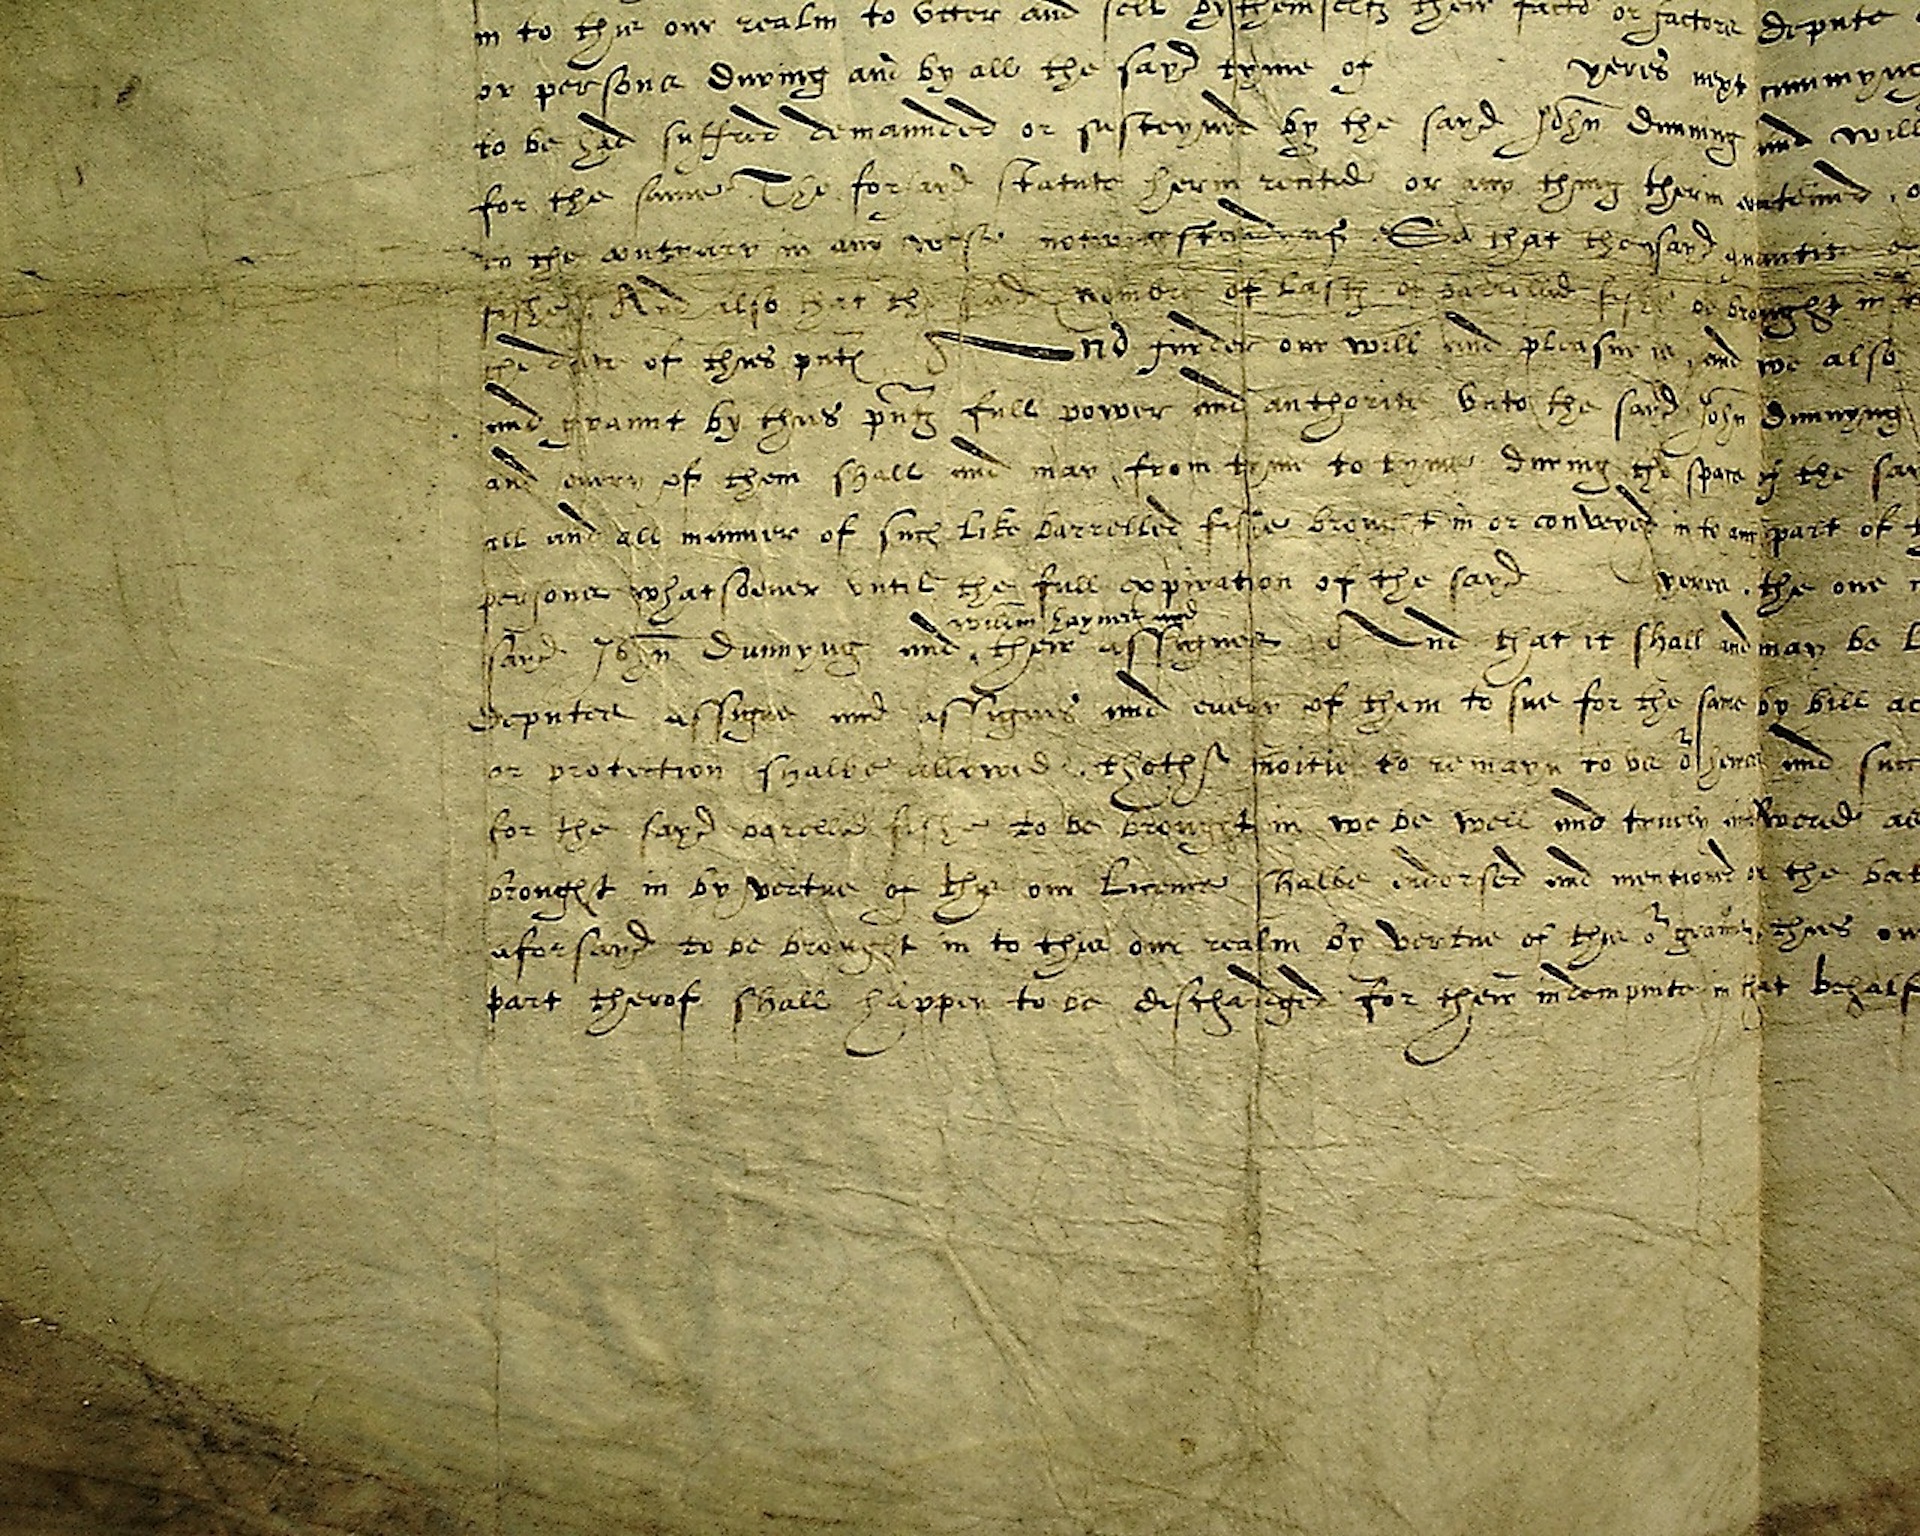 in to this our realm to vtter and sell by themselfz their facto or factors depute
or persons during and by all the sayd tyme of yeres next cummyng
to be had suffred demaunded or susteyned by the sayd John Dunning and will
for the same The forsayd statute herin recited or any thing therin conteined . o
to the contrary in any wise notwithstanding . So that the sayd quantite
fishe . And also that the said nomber of lastz of barrelled fishe be brought in
the date of thies pntz And further our will and pleasure is , and we also
and graunt by thies pñtz full power and authorite vnto the sayd John Dunnyng
and euery of them shall and may from tyme to tyme during the space of the say
all and all manner of such like barrelled fishe brought in or conveyed in to any part of
persons whatsoeuer vntill the full expiration of the sayd yeres . the one
william haynes and
sayd John Dunnyng and their assignes And that it shall and may be l
deputes assigne and assignes and euery of them to sue for the same by bill ac
or protection shalbe allowed . thother moitie to remayn to vs or heires and succ
for the sayd barelled fishe to be brought in we be well and truely answered as
brought in by vertue of this our Licence shalbe endorsed and mentioned on the bac
aforsayd to be brought in to this our realm by vertue of this or graunte thies our
part therof shall happen to be discharged for their indempnite in that behalf